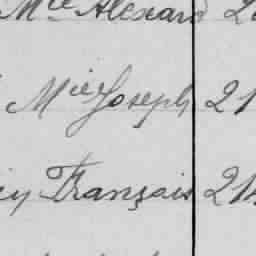 Mie Alexard 2
Mie Joseph 21
cy Français 21